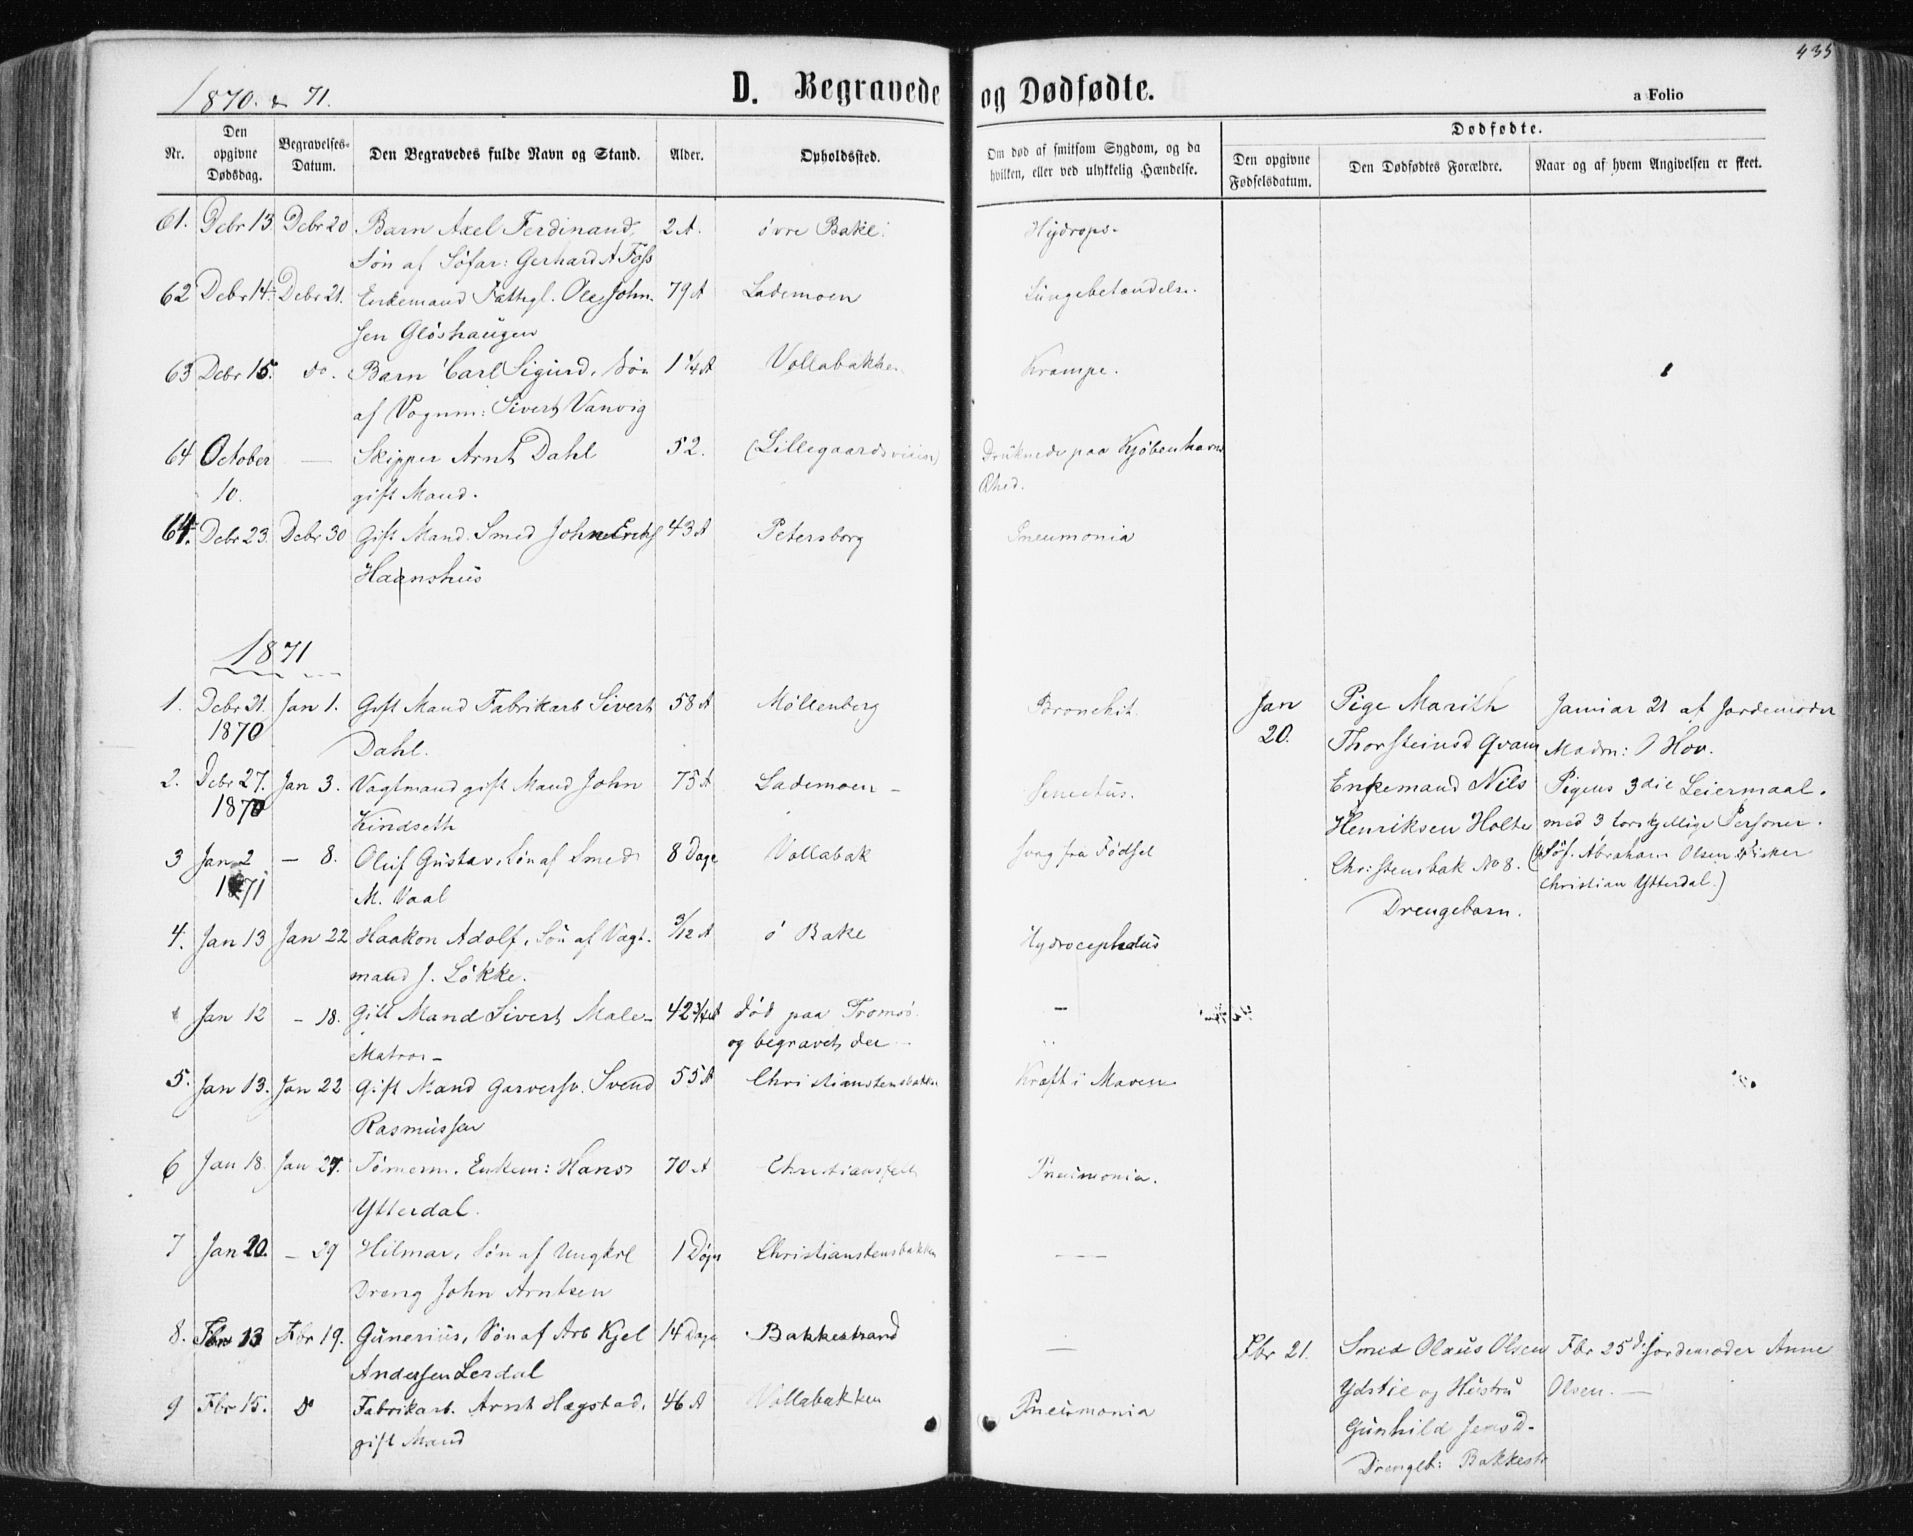 435
1870. & 71.
D. Begravede og Dødfødte.
a Folio
Nr.
Den opgivne Dødsdag.
Begravelses-Datum.
Den Begravedes fulde Navn og Stand.
Alder.
Opholdssted.
Om død af smitsom Sygdom, og da hvilken, eller ved ulykkelig Hændelse.
Dødfødte.
Den opgivne Fødselsdatum.
Den Dødfødtes Forældre.
Naar og af hvem Angivelsen er skeet.
61. Debr 13 Debr 20 Barn Axel Ferdinand, 2 A. øvre Bakl: Hydrops.
Søn af Søfar: Gerhard A Foss
62 Debr 14. Debr 21. Enkemand Fattigl. Ole John- 79 A Lademoen Lungebetændelse.
sen Gløshaugen
63 Debr 15. do. Barn Carl Sigurd, Søn 1 1/4 A Vollabakken Krampe.
af Vognm: Sivert Vanvig
64 October — Skipper Arnt Dahl 52. (Lillegaardsveien) Druknede paa Kjøbenhavns
10. gift Mand. Rhed.
64. Debr 23. Debr 30 Gift Mand. Smed John Eriks 43 A Petersborg Pneumonia
Haanshus
1871
1. Debr 21. Jan 1. Gift Mand Fabrikarb Sivert 58 A Møllenberg Bronchit. Jan Pige Marith Januar 21 af Jordemoder
1870 Dahl. 20. Thorsteinsd Qvam Madm: Hov.
2. Debr 27. Jan 3. Vagtmand gift Mand John 75 A Lademoen — Senectus. Enkemand Nils Pigens 3die Leiermaal.
1870 Kindseth Henriksen Holte med 3 forskjellige Personer.
3 Jan 2 — 8. Oluf Gustav, Søn af Smed 8 Dage Vollabak svag fra Fødsel Christensbak No 8. Søf. Abraham Olsen Fisker
1871 M. Vaal Christian Ytterdal.)
Drengebarn.
4. Jan 13 Jan 22 Haakon Adolf, Søn af Vagt- 3/12 A ø Bake Hydrocephalus
mand J. Løkke.
Jan 12 — 18. Gift Mand Sivert Male- 42 død paa Tromsø —
Matros — og begravet der —
5. Jan 13. Jan 22 Gift Mand Garversv. Svend 55 A Christianstensbakke Kræft i Maven
Rasmussen
6 Jan 18. Jan 27. Tømerm. Enkem: Hans 70 A Christiansten Pneumonia.
Ytterdal.
7 Jan 20. — 29 Hilmar, Søn af Ungkrl 1 Døgn Christianstensbakken —
Dreng John Arntsen
8. Fbr 13 Fbr 19. Gunerius, Søn af Arb Kjel 14 Dage Bakkestrand — Fbr 21. Smed Olaus Olsen Fbr 25 d. Jordemoder Anne
Andersen Lerdal Ydstie og Hustru Olsen. —
9 Fbr 15. Do Fabrikarb. Arnt Hægstad, 46 A Vollabakken Pneumonia Gunhild Jensd-
gift Mand Drengeb: Bakkestr